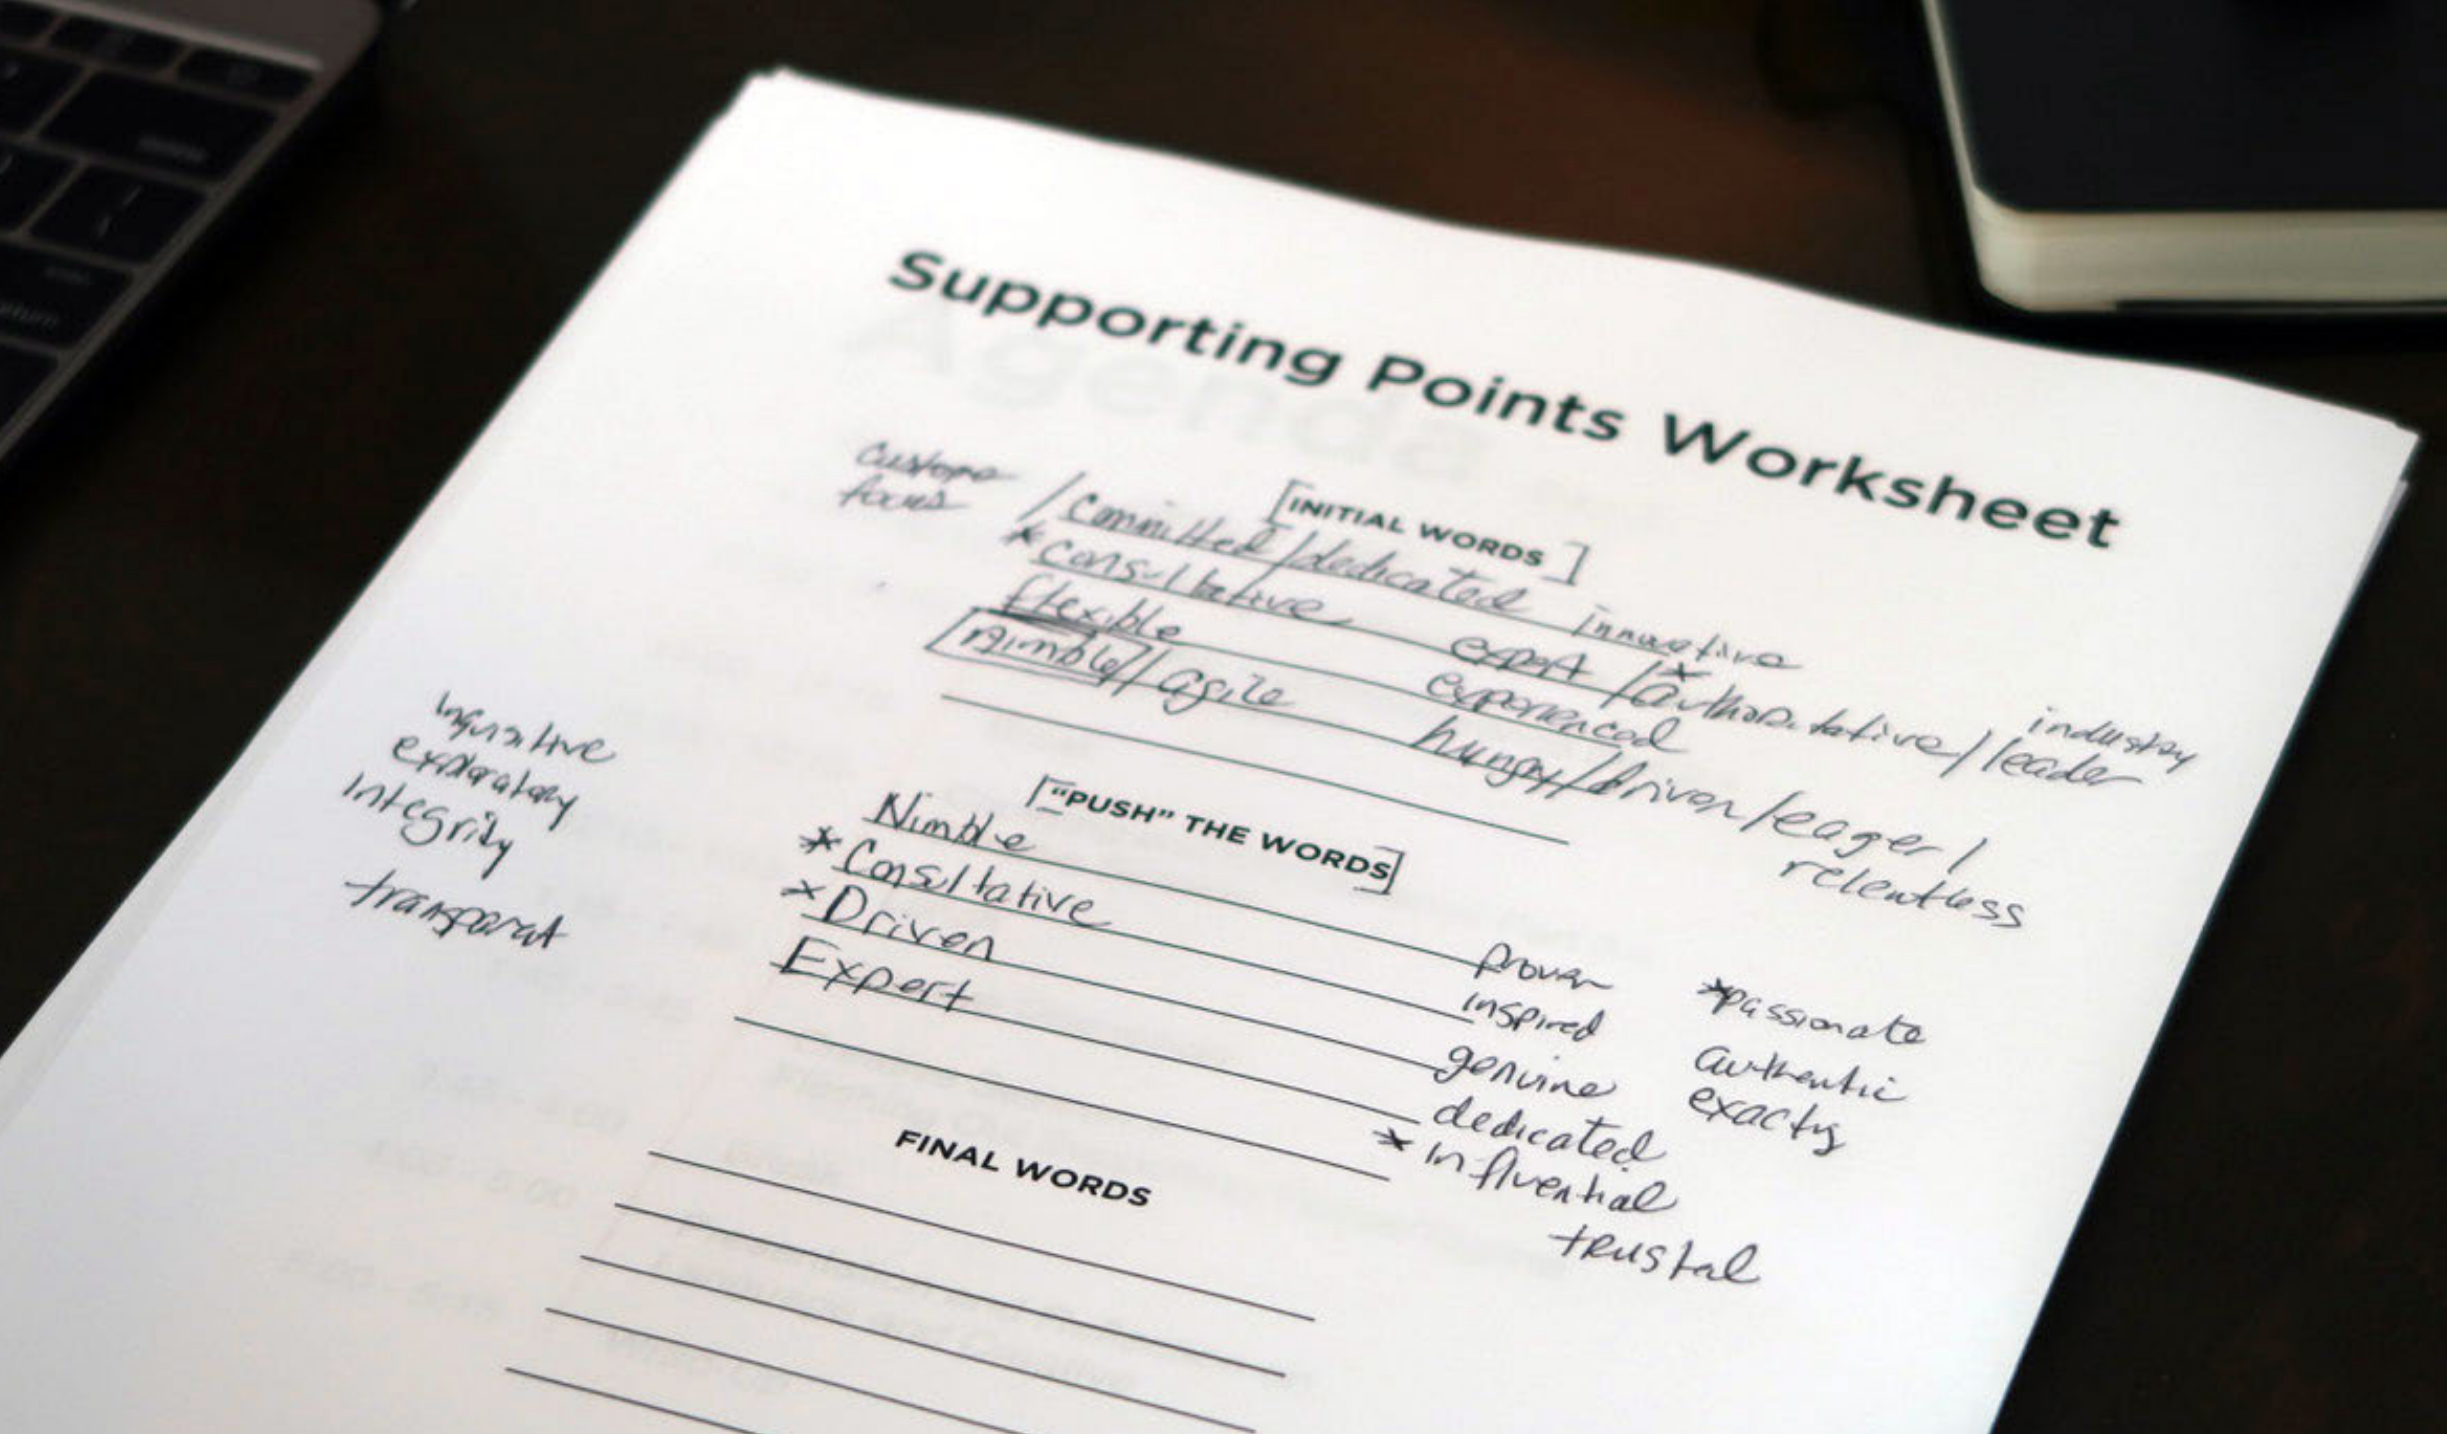 Supporting Points Worksheet
[INITIAL WORDS]
focus
/ Committed / dedicated
innovative
* Consultative
expert / * authoritative / leader
industry
flexible
experienced
Nimble / agile
hungry / driven / eager /
relentless
Inquisitive
exploratory
Integrity
transparent
["PUSH" THE WORDS]
Nimble
* Consultative
* Driven
Expert
proven
inspired
genuine
dedicated
* influential
trusted
*passionate
authentic
FINAL WORDS